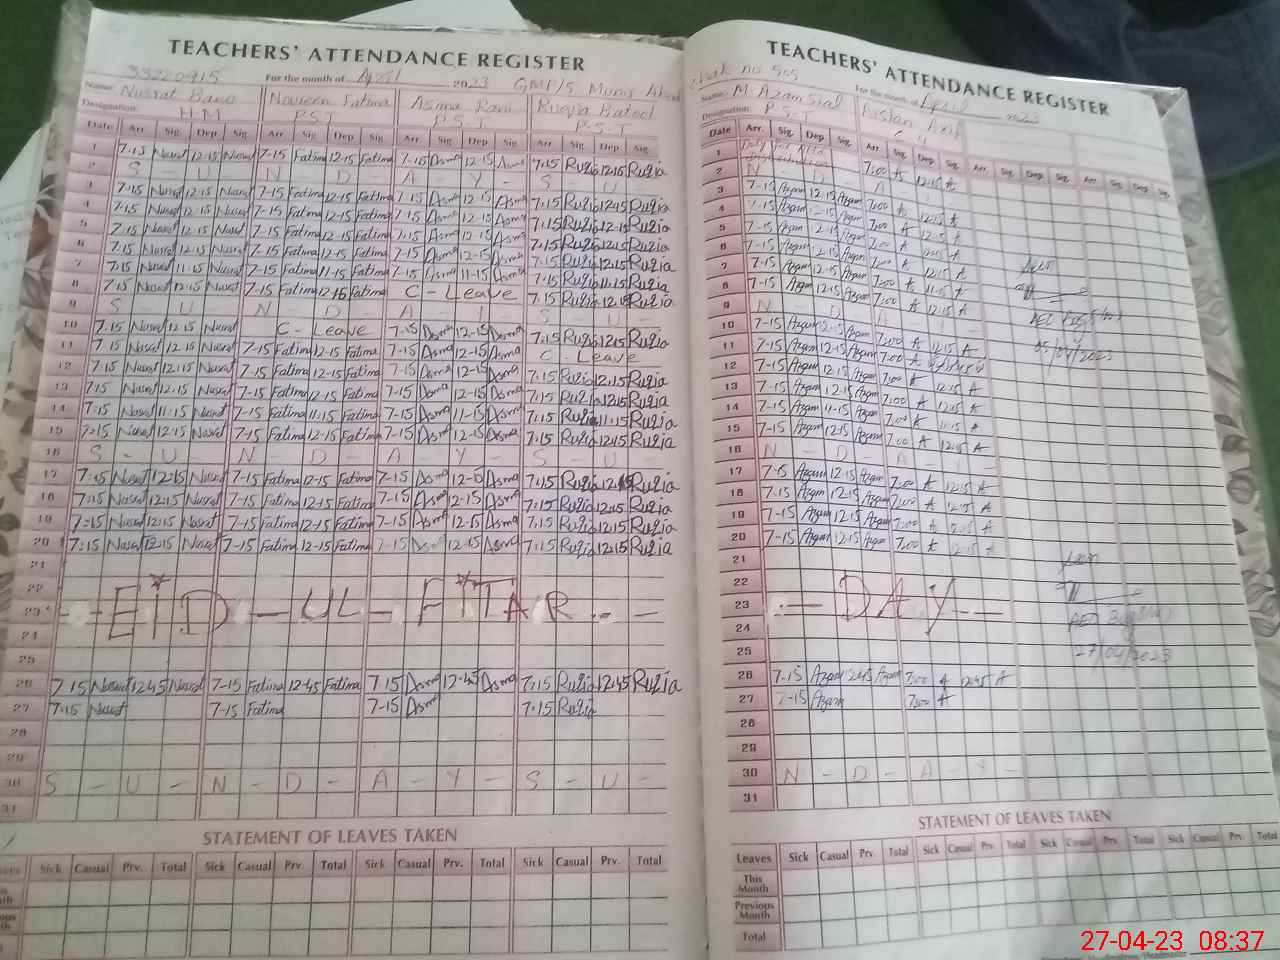 TEACHERS' ATTENDANCE REGISTER
33220915 For the month of April 2023 GMP/S
Name: Nusrat Bano Noureen Fatima Asma Rani Ruqia Batool
Designation: HM PST P-S-T P-S-T
Date Arr Sig Dep Sig Arr Sig Dep Sig Arr Sig Dep Sig Arr Sig Dep Sig
1 7-15 Nusrat 12-15 Nusrat 7-15 Fatima 12-15 Fatima 7-15 Asma 12-15 Asma 7:15 Ruqia 12:15 Ruqia
2 S - U - N - D - A - Y - S - U -
3 7-15 Nusrat 12-15 Nusrat 7-15 Fatima 12-15 Fatima 7-15 Asma 12-15 Asma 7:15 Ruqia 12:15 Ruqia
4 7-15 Nusrat 12-15 Nusrat 7-15 Fatima 12-15 Fatima 7-15 Asma 12-15 Asma 7:15 Ruqia 12-15 Ruqia
5 7-15 Nusrat 12-15 Nusrat 7-15 Fatima 12-15 Fatima 7-15 Asma 12-15 Asma 7:15 Ruqia 12:15 Ruqia
6 7-15 Nusrat 12-15 Nusrat 7-15 Fatima 12-15 Fatima 7-15 Asma 12-15 Asma 7:15 Ruqia 12:15 Ruqia
7 7:15 Nusrat 11-15 Nusrat 7-15 Fatima 11-15 Fatima 7-15 Asma 11-15 Asma 7:15 Ruqia 11:15 Ruqia
8 7-15 Nusrat 12-15 Nusrat 7-15 Fatima 12-15 Fatima C - Leave 7:15 Ruqia 12:15 Ruqia
9 S U N - D - A - Y - S - U -
10 7-15 Nusrat 12-15 Nusrat C - Leave 7-15 Asma 12-15 Asma 7:15 Ruqia 12:15 Ruqia
11 7-15 Nusrat 12-15 Nusrat 7-15 Fatima 12-15 Fatima 7-15 Asma 12-15 Asma C - Leave
12 7-15 Nusrat 12-15 Nusrat 7-15 Fatima 12-15 Fatima 7-15 Asma 12-15 Asma 7:15 Ruqia 12:15 Ruqia
13 7-15 Nusrat 12-15 Nusrat 7-15 Fatima 12-15 Fatima 7-15 Asma 12-15 Asma 7:15 Ruqia 12:15 Ruqia
14 7-15 Nusrat 11-15 Nusrat 7-15 Fatima 11-15 Fatima 7-15 Asma 11-15 Asma 7:15 Ruqia 11:15 Ruqia
15 7-15 Nusrat 12-15 Nusrat 7-15 Fatima 12-15 Fatima 7-15 Asma 12-15 Asma 7:15 Ruqia 12:15 Ruqia
16 S - U - N - D - A - Y - S - U -
17 7:15 Nusrat 12:15 Nusrat 7-15 Fatima 12-15 Fatima 7-15 Asma 12-15 Asma 7:15 Ruqia 12:15 Ruqia
18 7:15 Nusrat 12:15 Nusrat 7-15 Fatima 12-15 Fatima 7-15 Asma 12-15 Asma 7:15 Ruqia 12:15 Ruqia
19 7:15 Nusrat 12:15 Nusrat 7-15 Fatima 12-15 Fatima 7-15 Asma 12-15 Asma 7:15 Ruqia 12:15 Ruqia
20 7:15 Nusrat 12:15 Nusrat 7-15 Fatima 12-15 Fatima 7-15 Asma 12-15 Asma 7:15 Ruqia 12:15 Ruqia
21
22
23 - EID - UL - FITAR - -
24
25
26 7 15 Nusrat 12 45 Nusrat 7-15 Fatima 12-45 Fatima 7 15 Asma 12-45 Asma 7:15 Ruqia 12:45 Ruqia
27 7-15 Nusrat 7-15 Fatima 7-15 Asma 7:15 Ruqia
28
29
30 S - U - N - D - A - Y - S - U -
31
STATEMENT OF LEAVES TAKEN
Sick Casual Prv. Total Sick Casual Prv. Total Sick Casual Prv. Total Sick Casual Prv. Total
TEACHERS' ATTENDANCE REGISTER
Chak no 505 For the month of April 2023
Name: M Azam Sial Arslan Asif
Designation: P-S-T
Date Arr. Sig. Dep Sig Arr Sig Dep Sig Arr Sig Dep Sig Arr Sig Dep Sig
1 Duty for Atta 7:00 A 12:15 A
2 N - D - A
3 7-15 Azam 12-15 Azam 7:00 A 12:15 A
4 7-15 Azam 12-15 Azam 7:00 A 12:15 A
5 7-15 Azam 12-15 Azam 7:00 A 12:15 A
6 7-15 Azam 12-15 Azam 7:00 A 12:15 A
7 7-15 Azam 12-15 Azam 7:00 A 11:15 A
8 7-15 Azam 12-15 Azam 7:00 A 12:15 A
9 N - D - A Y -
10 7-15 Azam 12-15 Azam 7:00 A 12:15 A
11 7-15 Azam 12-15 Azam 7:00 A
12 7-15 Azam 12-15 Azam 7:00 A 12:15 A
13 7-15 Azam 12-15 Azam 7:00 A 12:15 A
14 7-15 Azam 11-15 Azam 7:00 A 11:15 A
15 7-15 Azam 12-15 Azam 7:00 A 12:15 A
16 N - D - A - Y -
17 7-15 Azam 12-15 Azam 7:00 A 12:15 A
18 7-15 Azam 12-15 Azam 7:00 A 12:15 A
19 7-15 Azam 12-15 Azam 7:00 A 12:15 A
20 7-15 Azam 12-15 Azam 7:00 A 12:15 A
21
22
23 - DAY -
24
25
26 7-15 Azam 12:45 Azam 7:00 A 12:45 A
27 7-15 Azam 7:00 A
28
29
30 N - D - A - Y -
31
Seen
AEO
05/04/2023
Seen
AEO
27/04/2023
STATEMENT OF LEAVES TAKEN
Leaves Sick Casual Prv. Total Sick Casual Prv. Total Sick Casual Prv. Total Sick Casual Prv. Total
This Month
Previous Month
Total
27-04-23 08:37